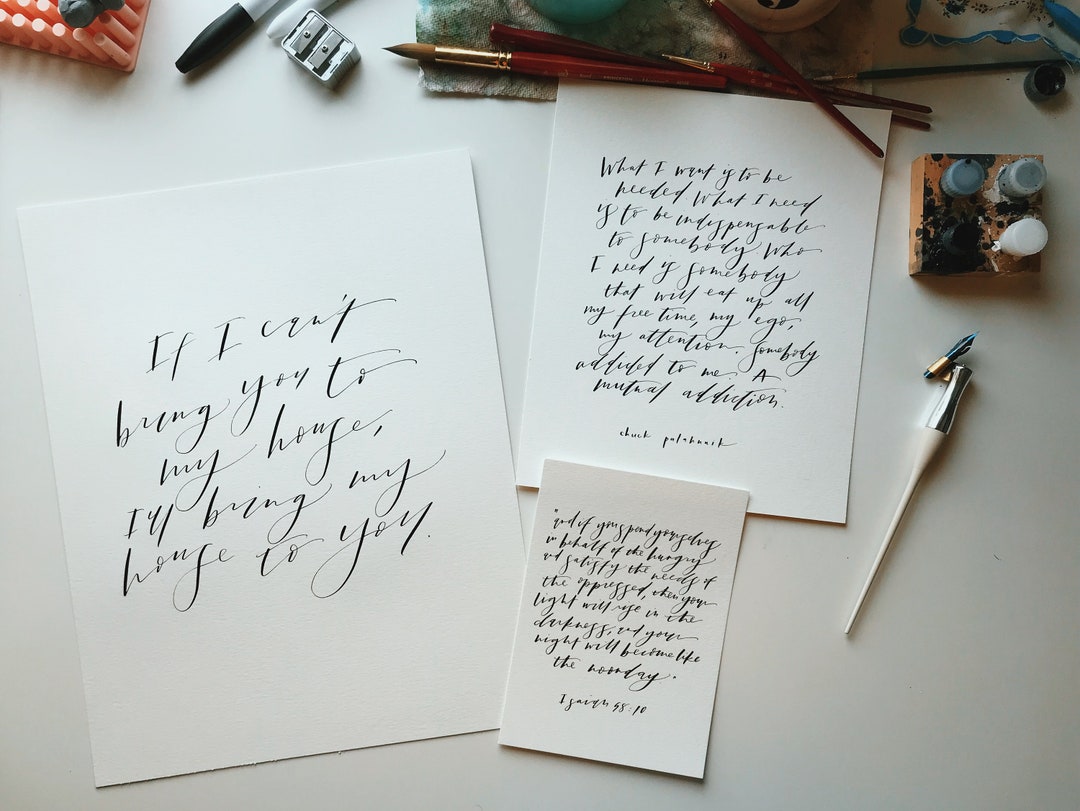 If I can't
bring you to
my house,
I'll bring my
house to you.
What I want is to be
needed What I need
is to be indispensable
to somebody Who
I need is somebody
that will eat up all
my free time, my ego,
my attention. Somebody
addicted to me. A
mutual addiction.
chuck palahnuik
"and if you spend yourselves
in behalf of the hungry
and satisfy the needs of
the oppressed, then your
light will rise in the
darkness, and your
night will become like
the noonday.
Isaiah 58:10